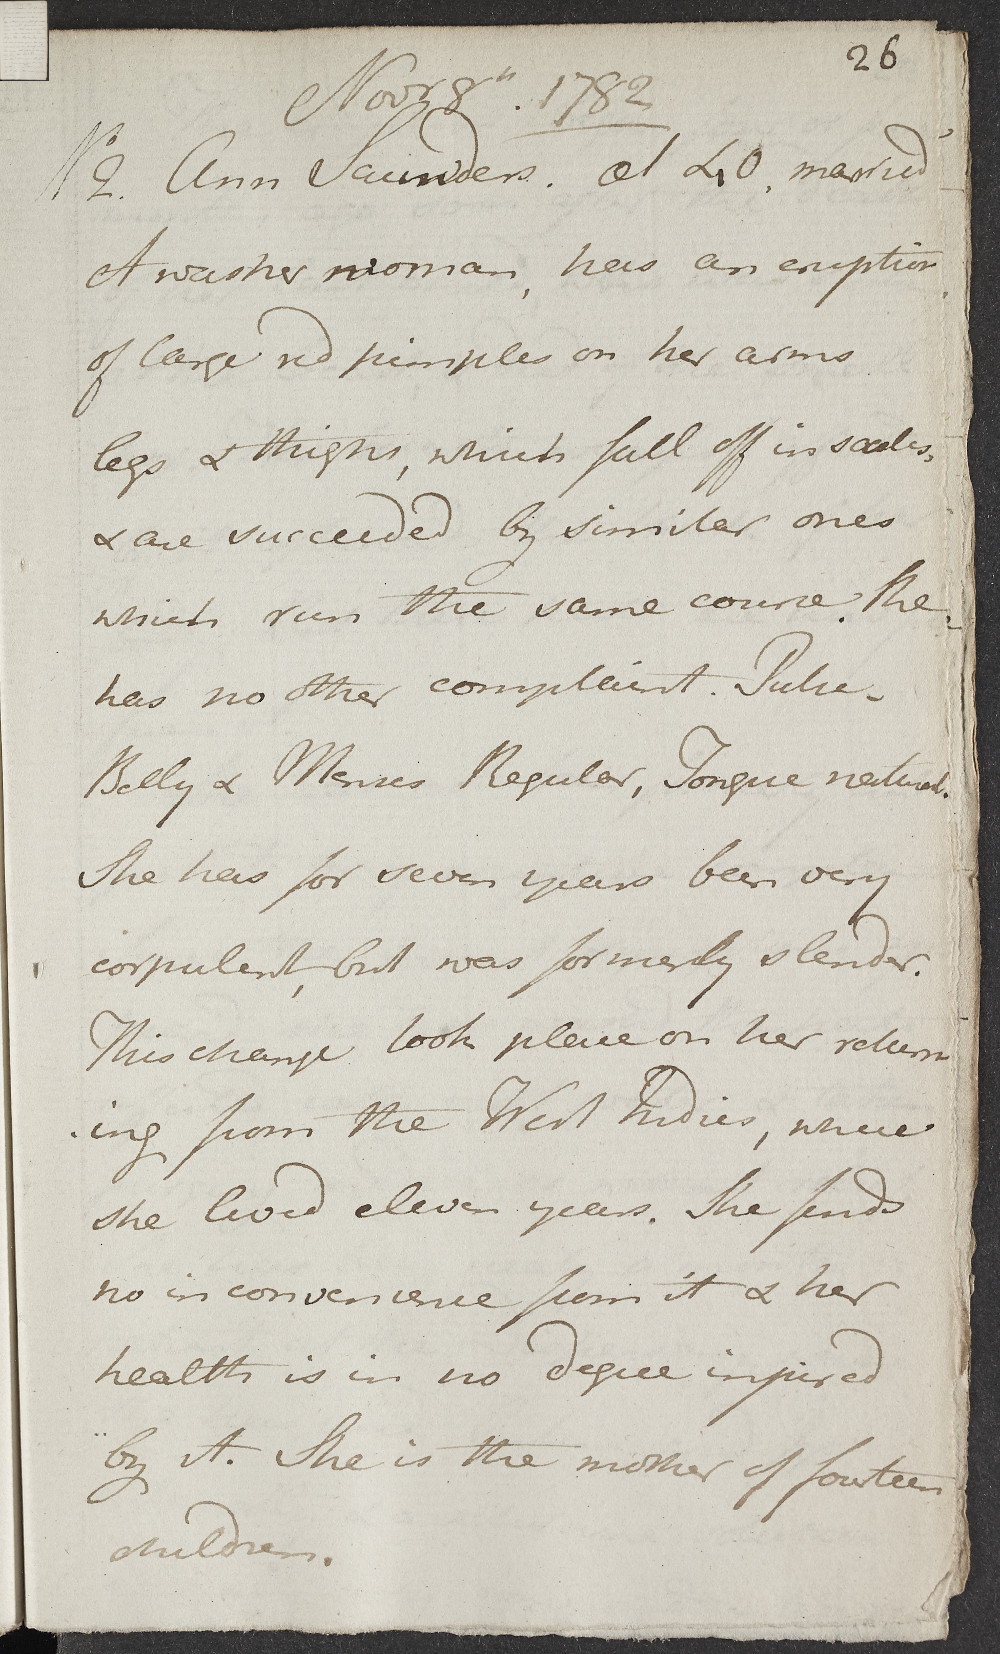 26
Novr 8th. 1782
No 2. Ann Saunders. æt 40, married
A washer woman, has an eruption
of large red pimples on her arms
legs & thighs, which fall off in scales,
& are succeeded by similar ones
which run the same course. She
has no other complaint. Pulse
Belly & Menses Regular, Tongue natural.
She has for seven years been very
corpulent, but was formerly slender.
This change took place on her return
ing from the West Indies, where
she lived eleven years. She finds
no inconvenience from it & her
health is in no degree injured
by it. She is the mother of fourteen
children.